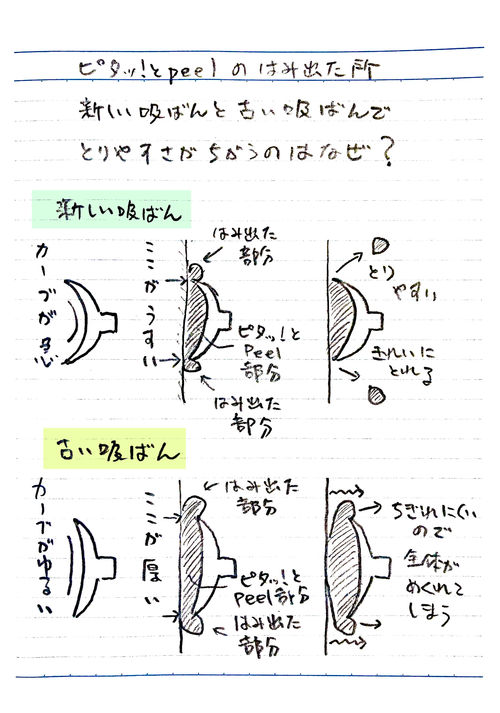 ピタッ!とpeelのはみ出た所
新しい吸ばんと古い吸ばんで
とりやすさがちがうのはなぜ?
新しい吸ばん
カーブが急
ここがうすい
はみ出た
部分
ピタッ!と
Peel
部分
はみ出た
部分
とり
やすい
きれいに
とれる
古い吸ばん
カーブがゆるい
ここが厚い
はみ出た
部分
ピタッ!と
Peel部分
はみ出た
部分
ちぎれにくい
ので
全体が
めくれて
しまう